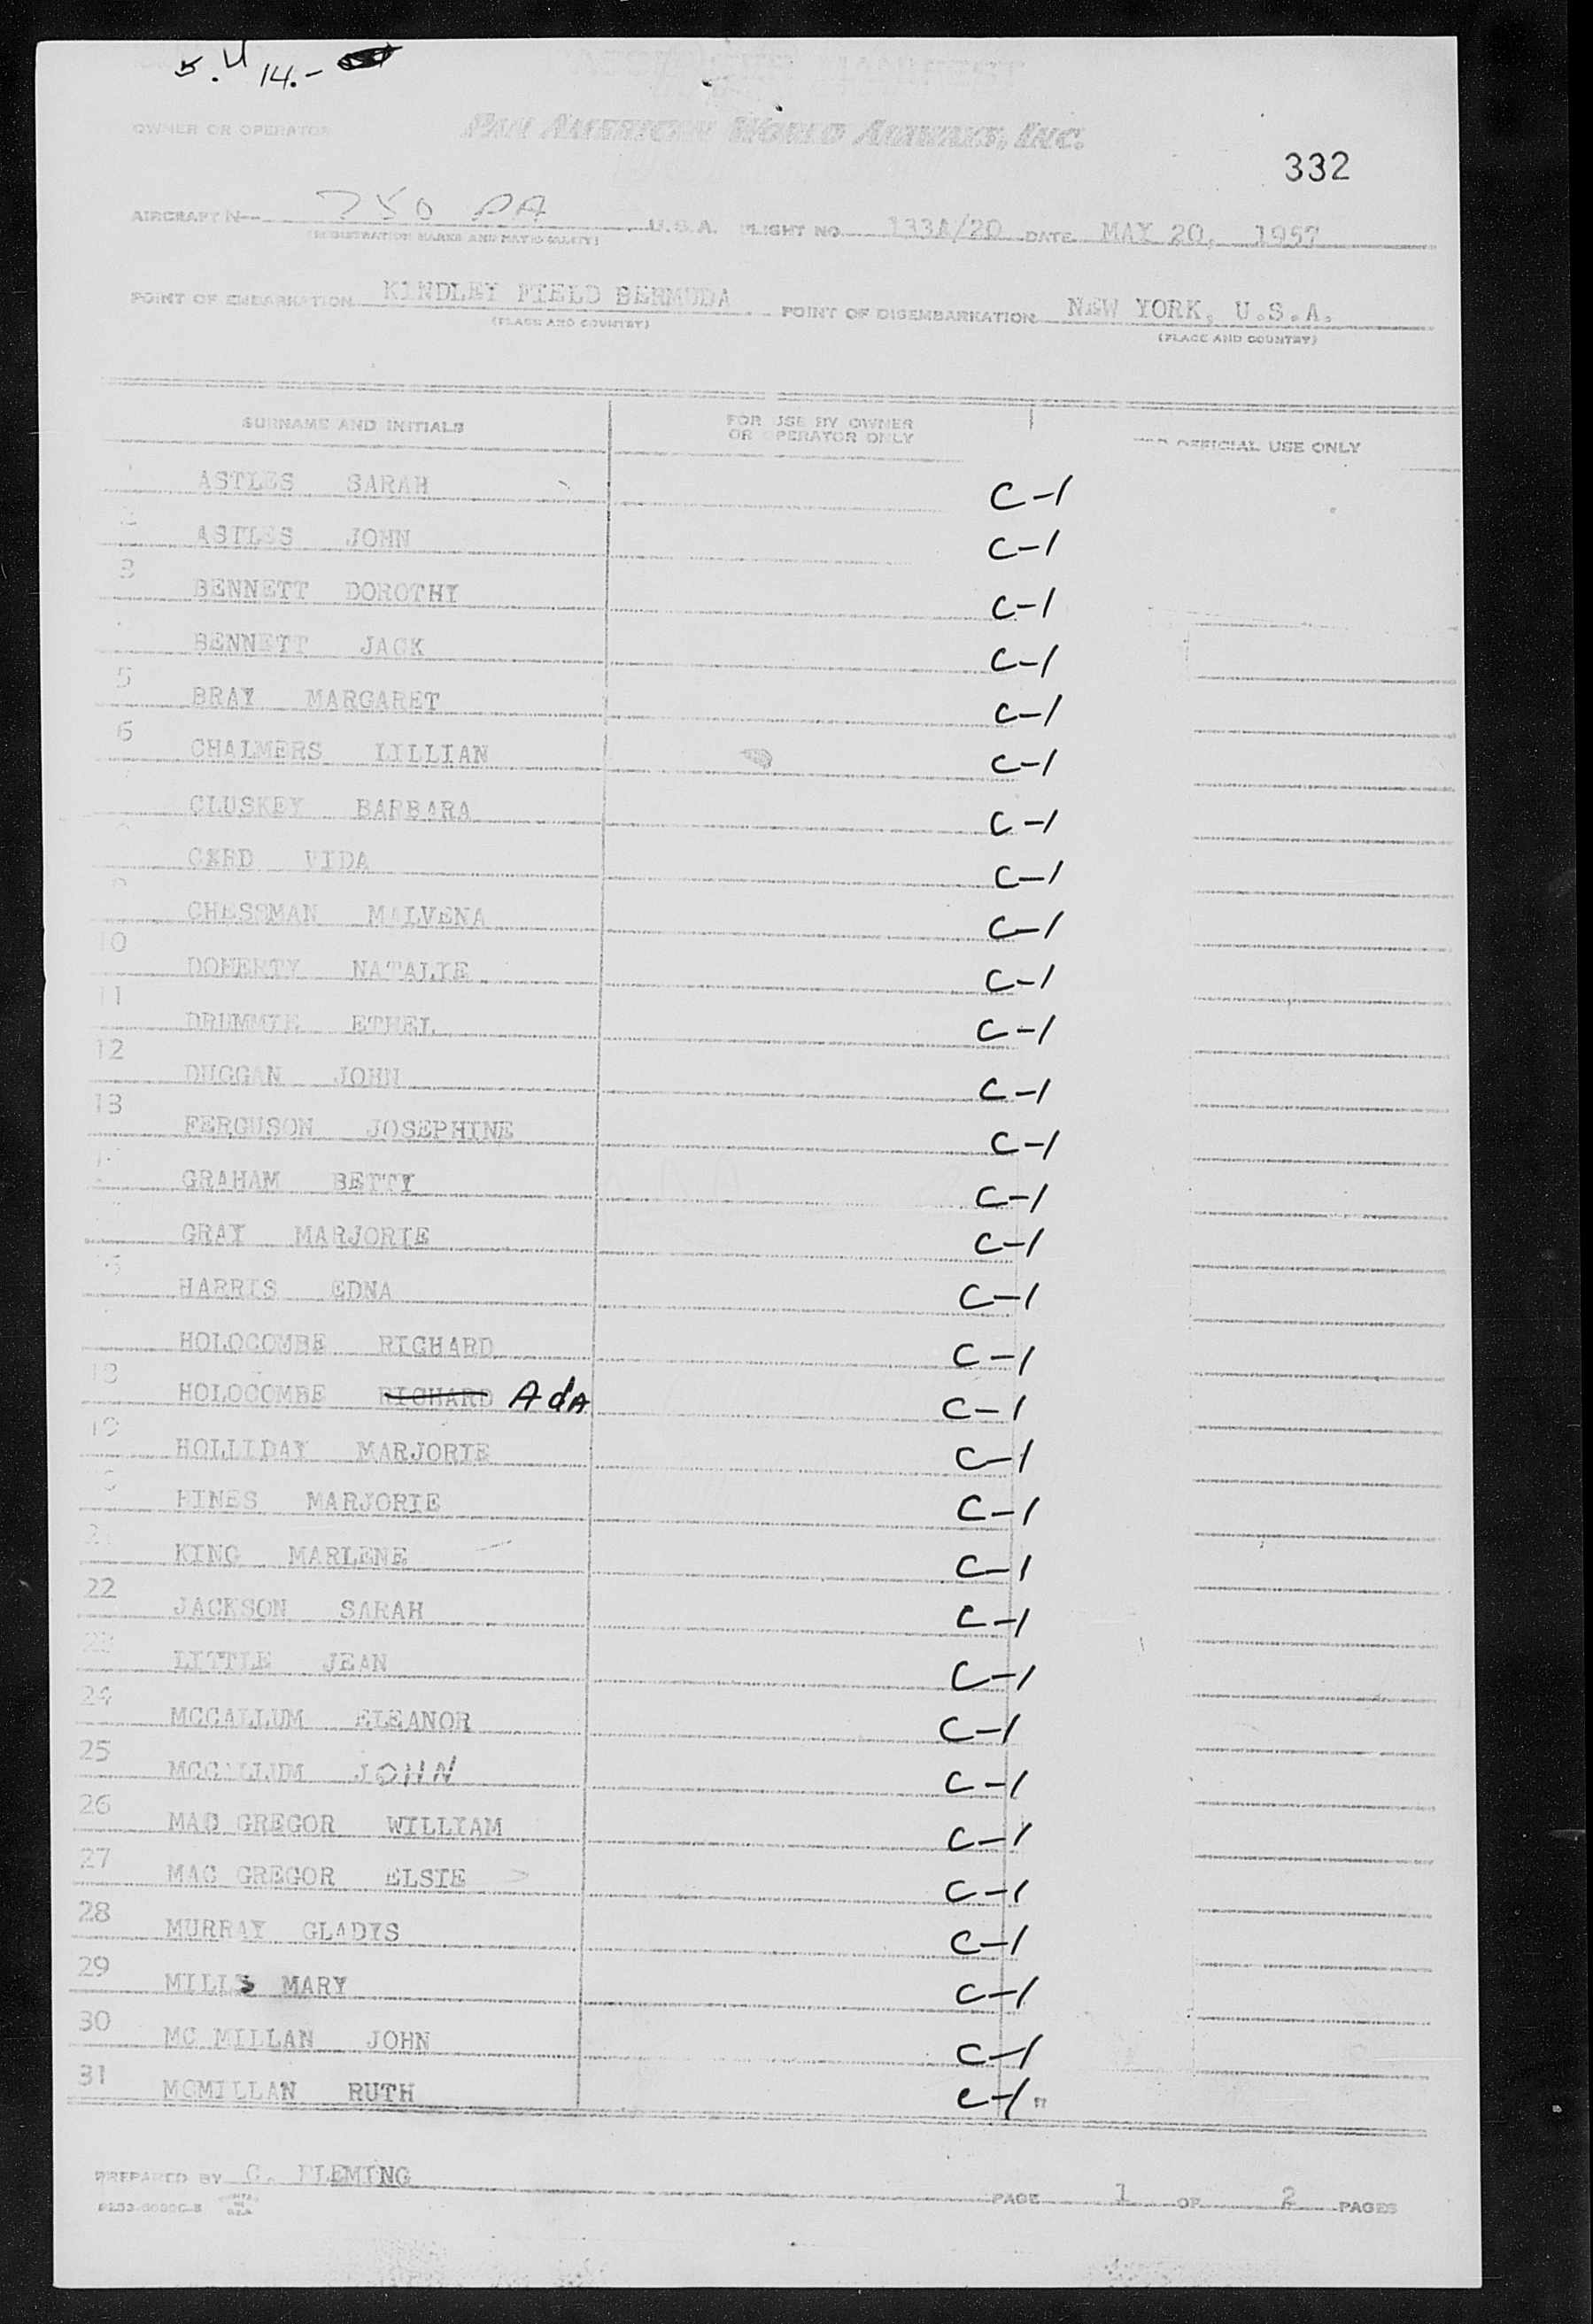 5.4 14.-
PASSENGER MANIFEST
OWNER OR OPERATOR PAN AMERICAN WORLD AIRWAYS, INC.
332
AIRCRAFT N- 750 PA U.S.A. FLIGHT NO. 133A/20 DATE MAY 20, 1957
(REGISTRATION MARKS AND NATIONALITY)
POINT OF EMBARKATION KINDLEY FIELD BERMUDA POINT OF DISEMBARKATION NEW YORK, U.S.A.
(PLACE AND COUNTRY) (PLACE AND COUNTRY)
SURNAME AND INITIALS FOR USE BY OWNER OR OPERATOR ONLY FOR OFFICIAL USE ONLY
ASTLES SARAH C-1
2 ASTLES JOHN C-1
3 BENNETT DOROTHY C-1
BENNETT JACK C-1
5 BRAY MARGARET C-1
6 CHALMERS LILLIAN C-1
CLUSKEY BARBARA C-1
CARD VIDA C-1
CHESSMAN MALVENA C-1
10 DOHERTY NATALIE C-1
11 DRUMMIE ETHEL C-1
12 DUGGAN JOHN C-1
13 FERGUSON JOSEPHINE C-1
GRAHAM BETTY C-1
GRAY MARJORIE C-1
HARRIS EDNA C-1
HOLOCOMBE RICHARD C-1
18 HOLOCOMBE RICHARD AdA C-1
19 HOLLIDAY MARJORIE C-1
HINES MARJORIE C-1
21 KING MARLENE C-1
22 JACKSON SARAH C-1
23 LITTLE JEAN C-1
24 MCCALLUM ELEANOR C-1
25 MCCALLUM JOHN C-1
26 MAC GREGOR WILLIAM C-1
27 MAC GREGOR ELSIE C-1
28 MURRAY GLADYS C-1
29 MILLS MARY C-1
30 MC MILLAN JOHN C-1
31 MCMILLAN RUTH C-1 "
PREPARED BY G. FLEMING PAGE 1 OF 2 PAGES